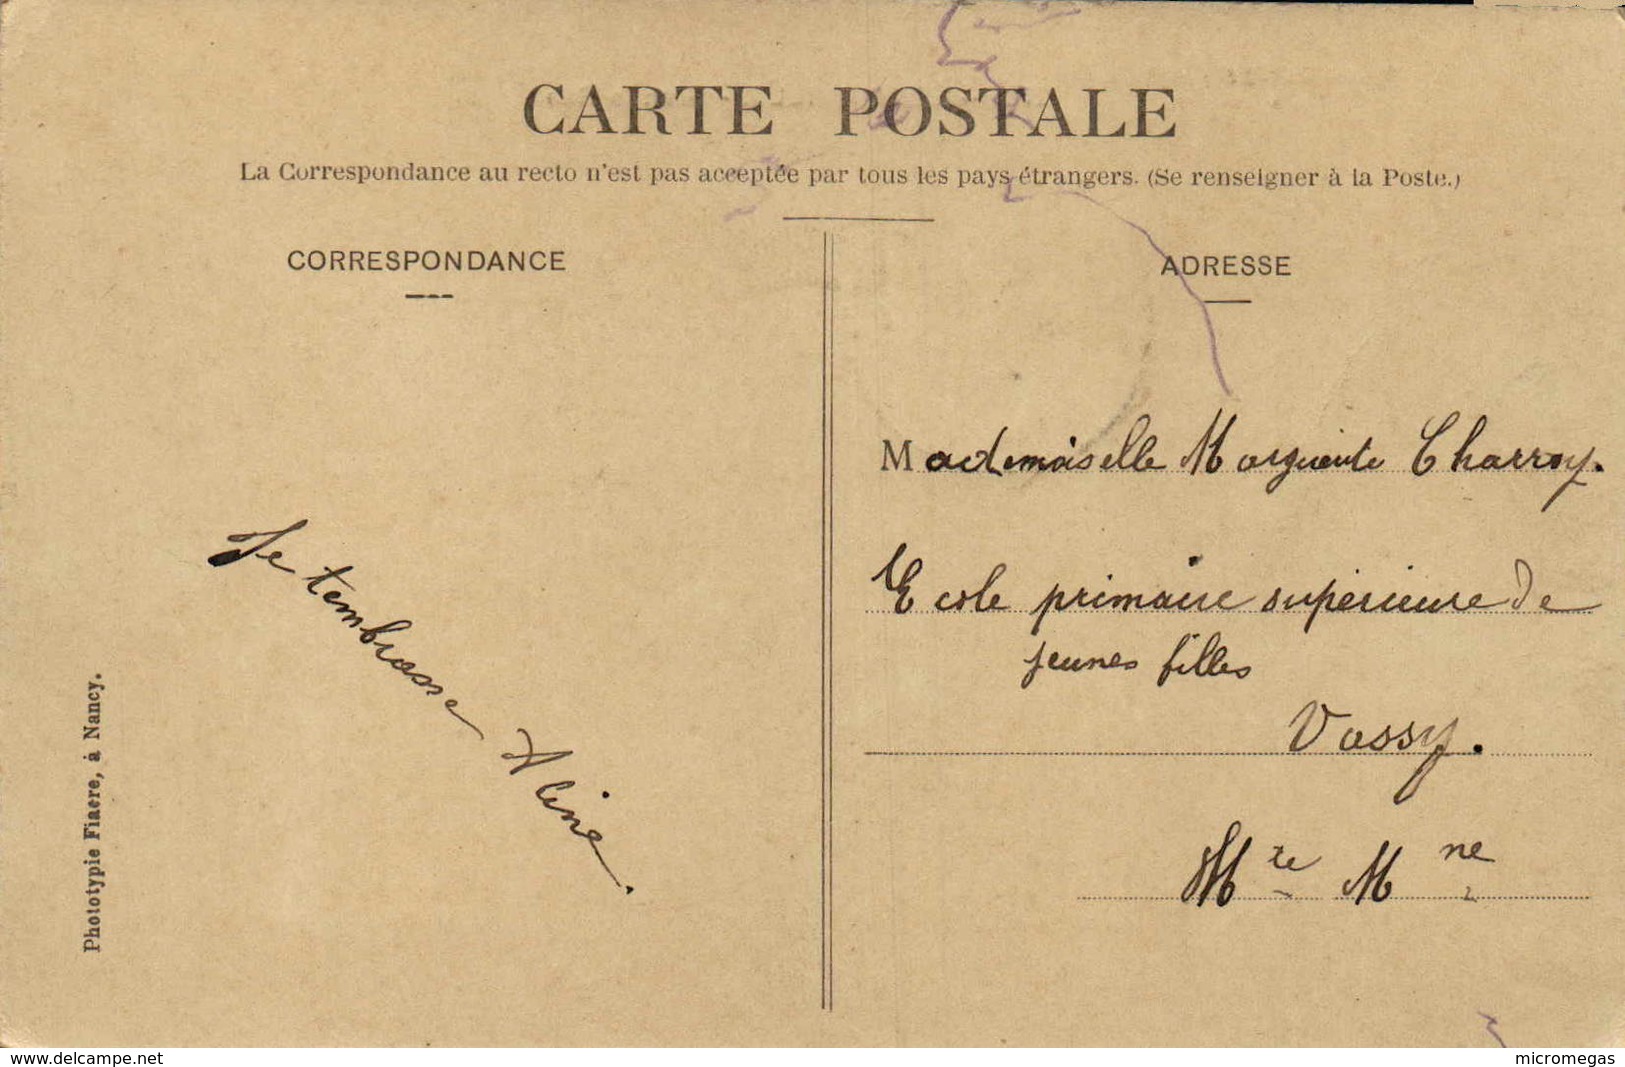 CARTE POSTALE
La Correspondance au recto n'est pas acceptée par tous les pays étrangers. (Se renseigner à la Poste.)
CORRESPONDANCE
Je t'embrasse Aline.
Phototypie Fiacre, à Nancy.
ADRESSE
Mademoiselle Marguerite Charroy.
Ecole primaire supérieure de
jeunes filles
Vassy.
Hte Mne
www.delcampe.net
micromegas